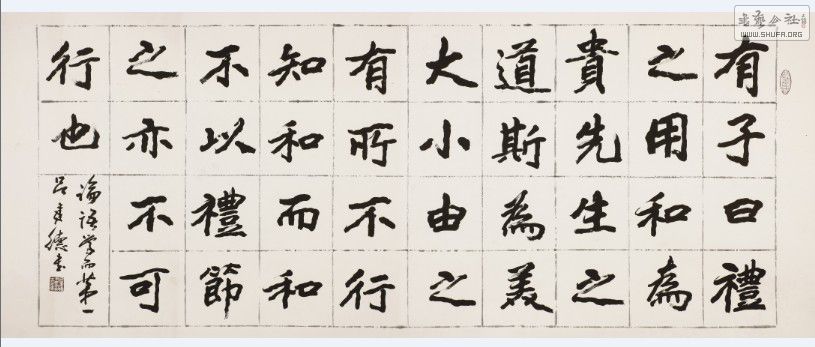 有子曰禮
之用和為
貴先生之
道斯為美
大小由之
有所不行
知和而和
不以禮節
之亦不可
行也
论语学而第一
吕德书
书艺公社
WWW.SHUFA.ORG